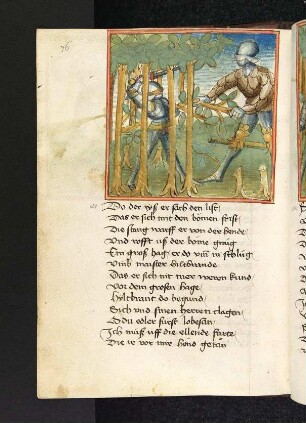 76
Do der rys er sach den list
Das er sich mit den bömen frist
Die stang warff er von der hende
Und rofft uß der bome gnüg
Ein groß hag er do umb in schlug
Umb maister hiltbrande
Das er sich nit mer weren kund
Vor dem grosen hage
Hyltbrant do begund
Sich und sinen herren clagen
O du edler fürst lobesan
Ich müß uff die ellende farte
Die ir vor mir hond getan